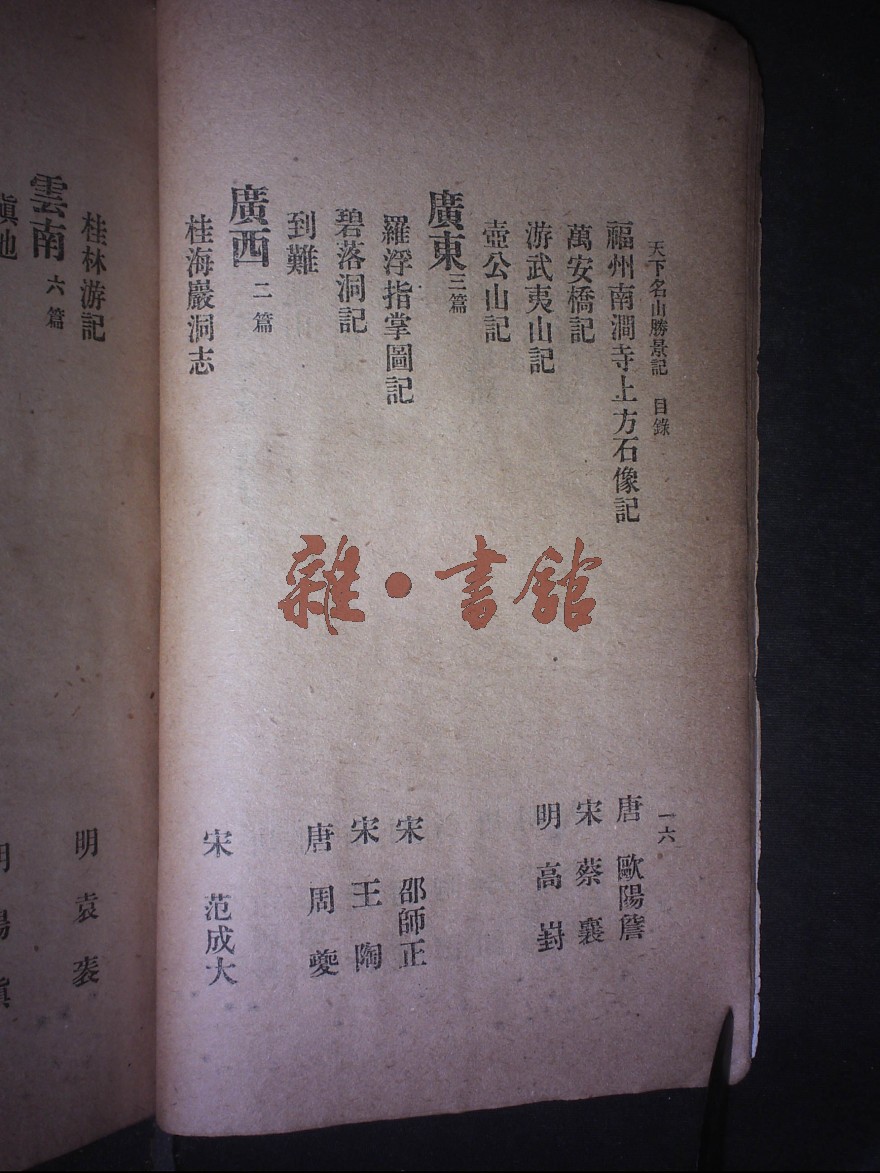 天下名山勝景記 目錄 一六
福州南澗寺上方石像記 唐 歐陽詹
萬安橋記 宋 蔡襄
游武夷山記 明 高
壺公山記
廣東 三篇
羅浮指掌圖記 宋 邵師正
碧落洞記 宋 王陶
到難 唐 周夔
廣西 二篇
桂海巖洞志 宋 范成大
桂林游記 明 袁袠
雲南 六篇
雜·書館